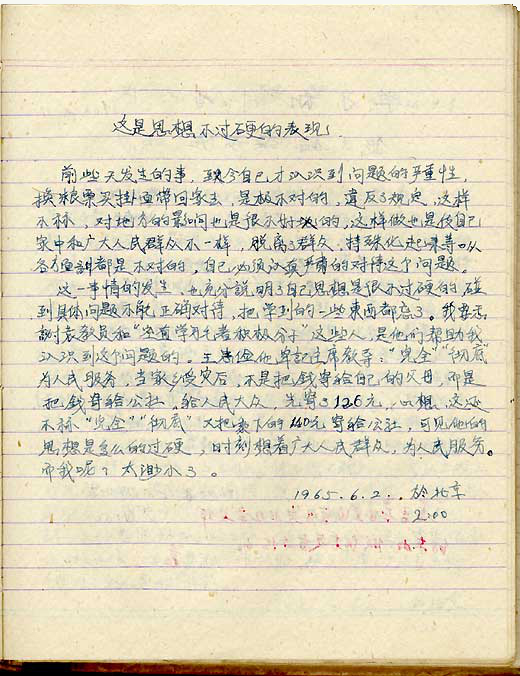 这是思想不过硬的表现
前些天发生的事,到今自己才认识到问题的严重性,
换粮票买挂面带回家去,是极不对的,违反了规定,这样
不称,对地方的影响也是很不好的,这样做也是使自己
家中和广大人民群众不一样,脱离了群众,特殊化起来等所以
各方面讲都是不对的,自己必须认真严肃的对待这个问题。
这一事情的发生,也充分说明了自己思想是很不过硬的碰
到具体问题不能正确对待,把学到的一些东西都忘了。我要感
谢袁教员和“学毛著积极分子”这些人,是他们帮助我
认识到这个问题的。王 他牢记主席教导,“完全”“彻底”
为人民服务,当家乡受灾后,不是把钱寄给自己的父母,而是
把钱寄给公社,给人民大众,先寄了126元,心想,这还
不称“完全”“彻底”又把剩下的 元寄给公社,可见他的
思想是多么的过硬,时刻想着广大人民群众,为人民服务。
而我呢?太渺小了。
1965.6.2. 於北京
2:00